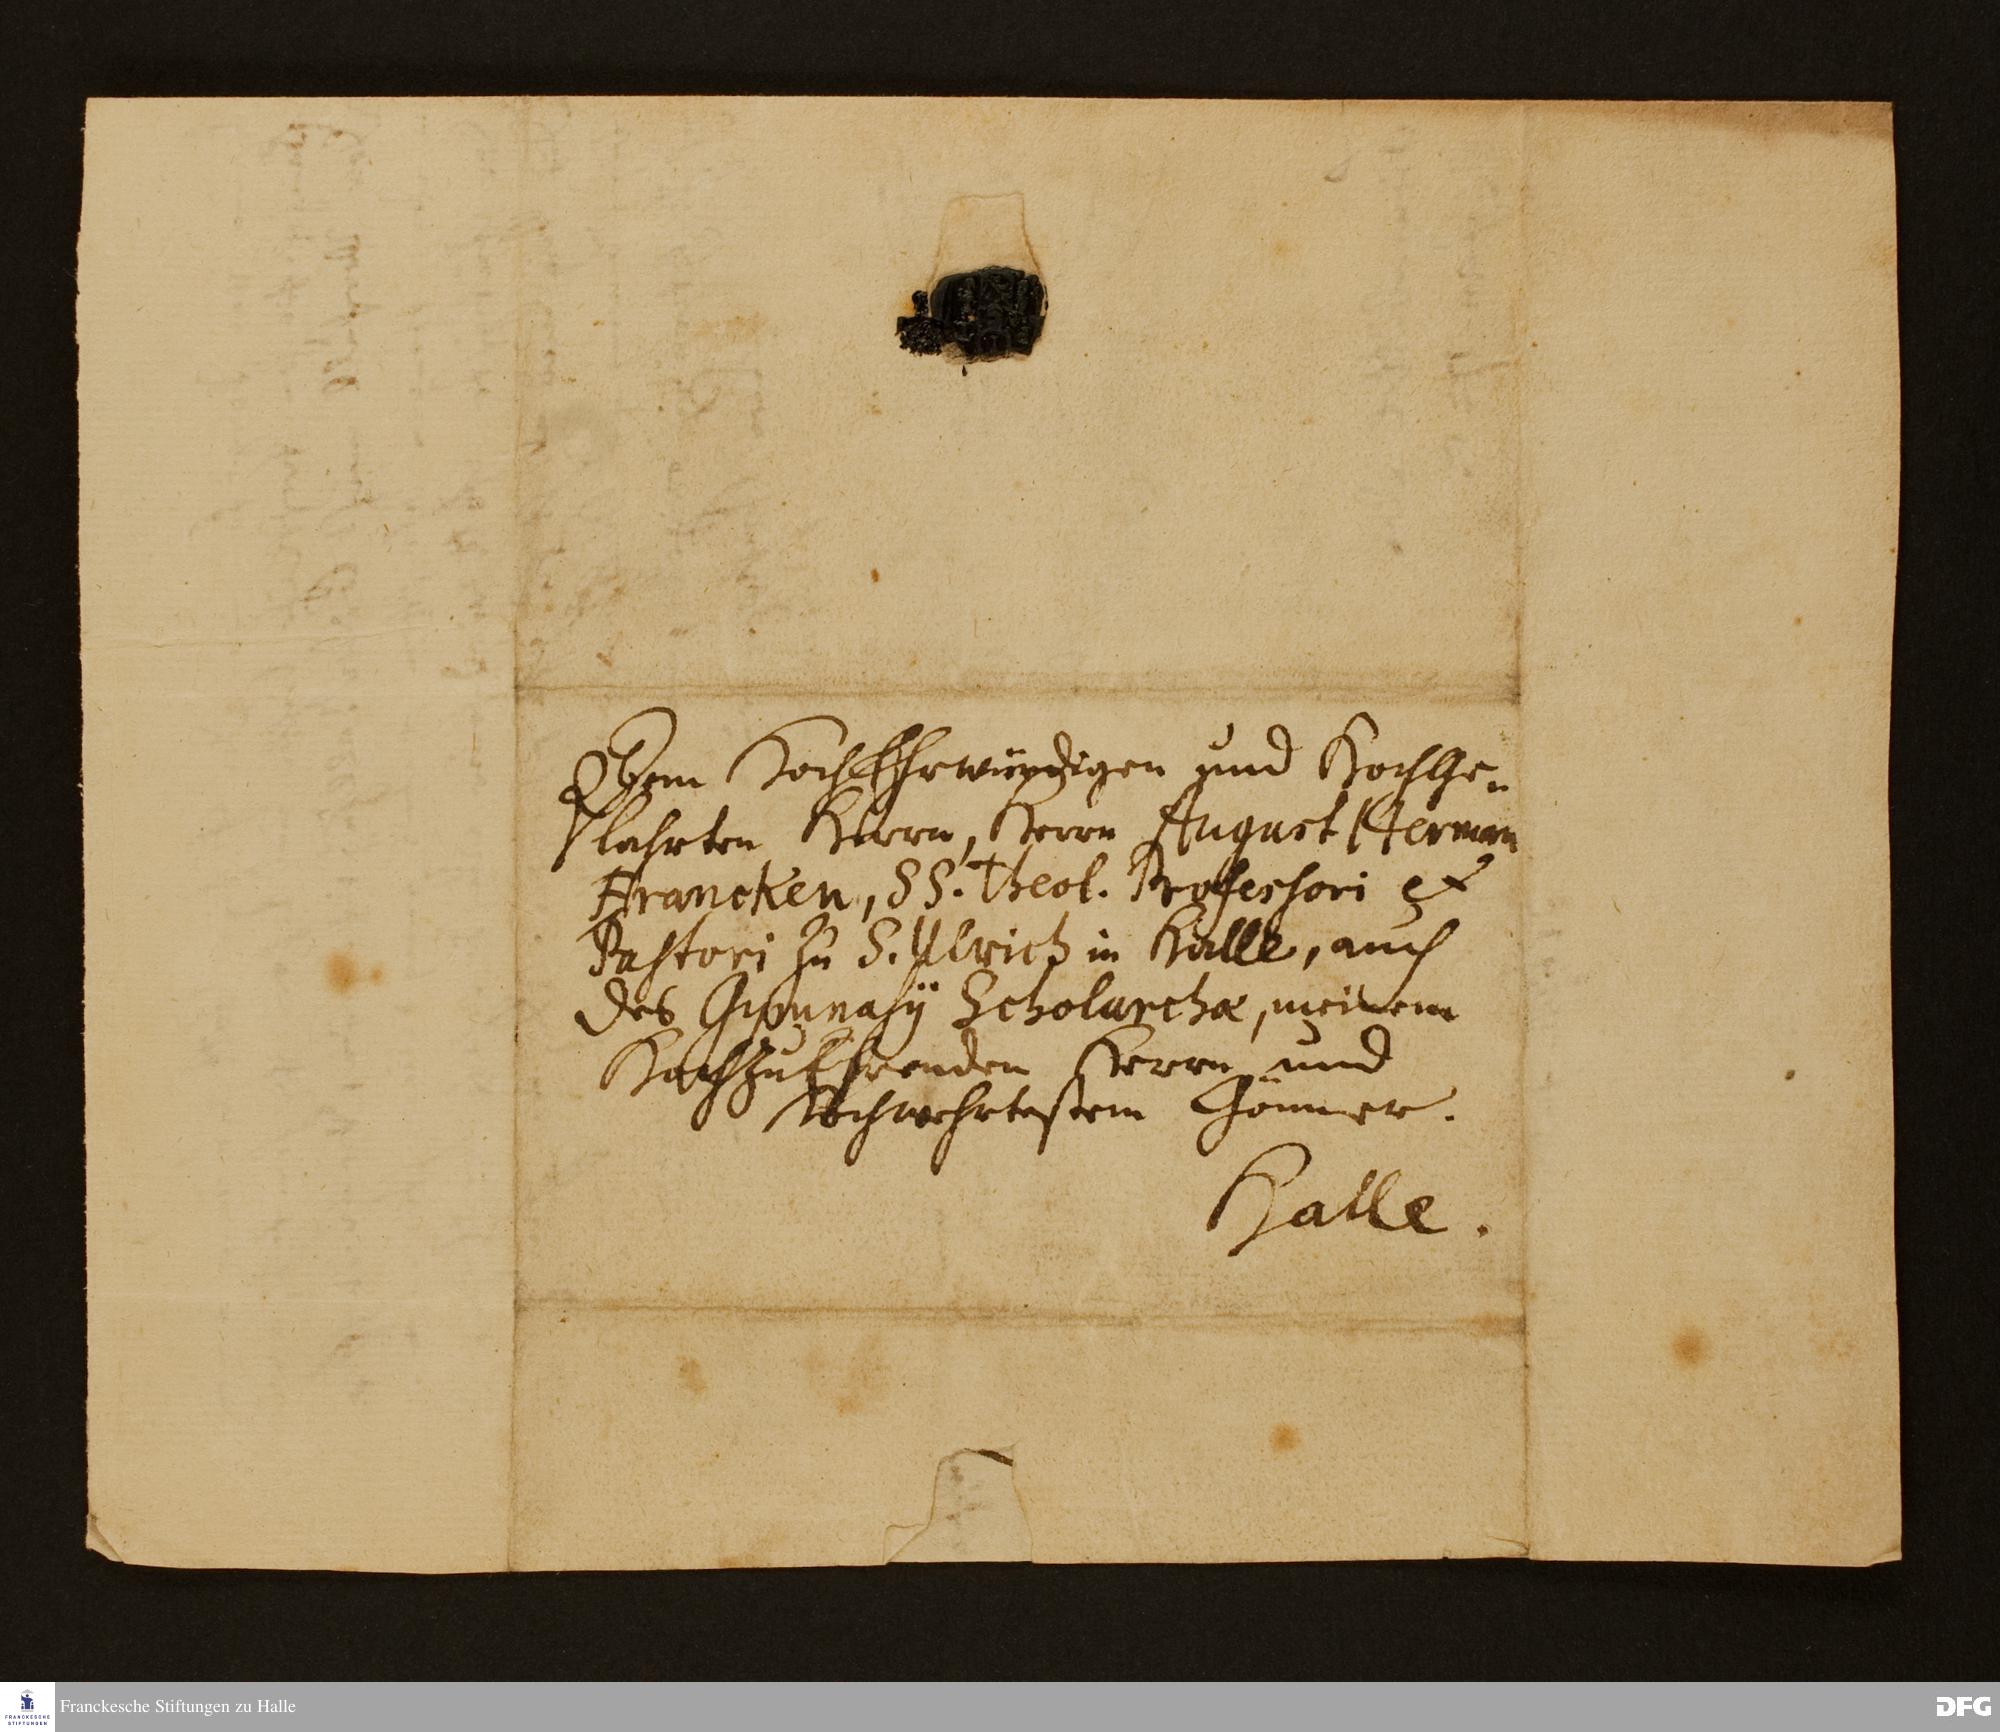 Dem HochEhrwürdigen und HochGe-
lahrten Herrn, Herrn August Herman
Francken, SS. Theol. Professori et
Pastori zu S. Ulrich in Halle, auch
des Gymnasÿ Scholarchæ, meinem
HochzuEhrenden Herrn und
Hochwehrtestem Gönner.
Halle.
FRANCKESCHE
STIFTUNGEN
Franckesche Stiftungen zu Halle
DFG